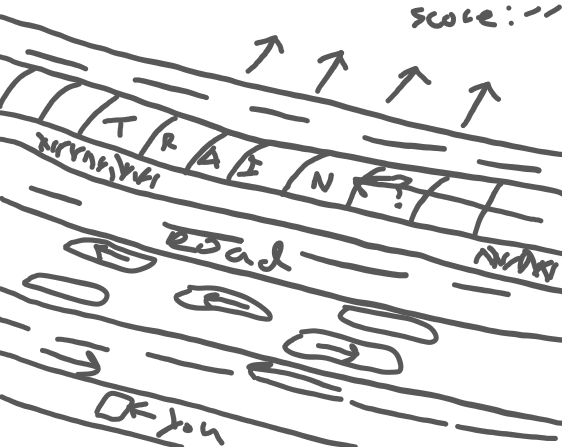 score: --
TRAIN
?
road
you